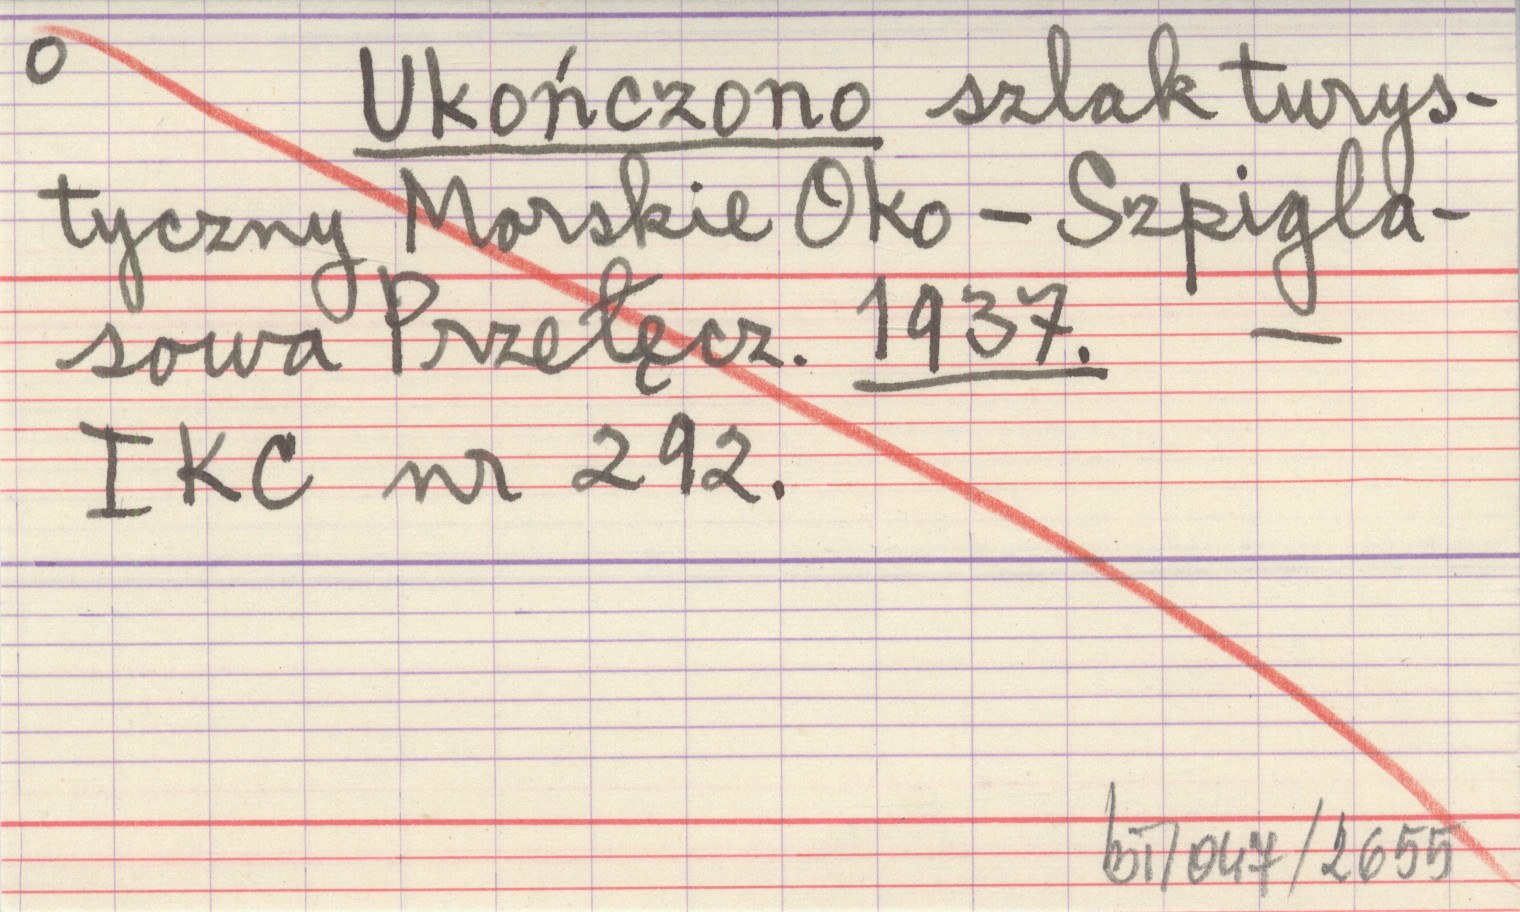 o Ukończono szlak turys-
tyczny Morskie Oko - Szpigla-
sowa Przełęcz. 1937. -
IKC nr 292.
bī/047/2655